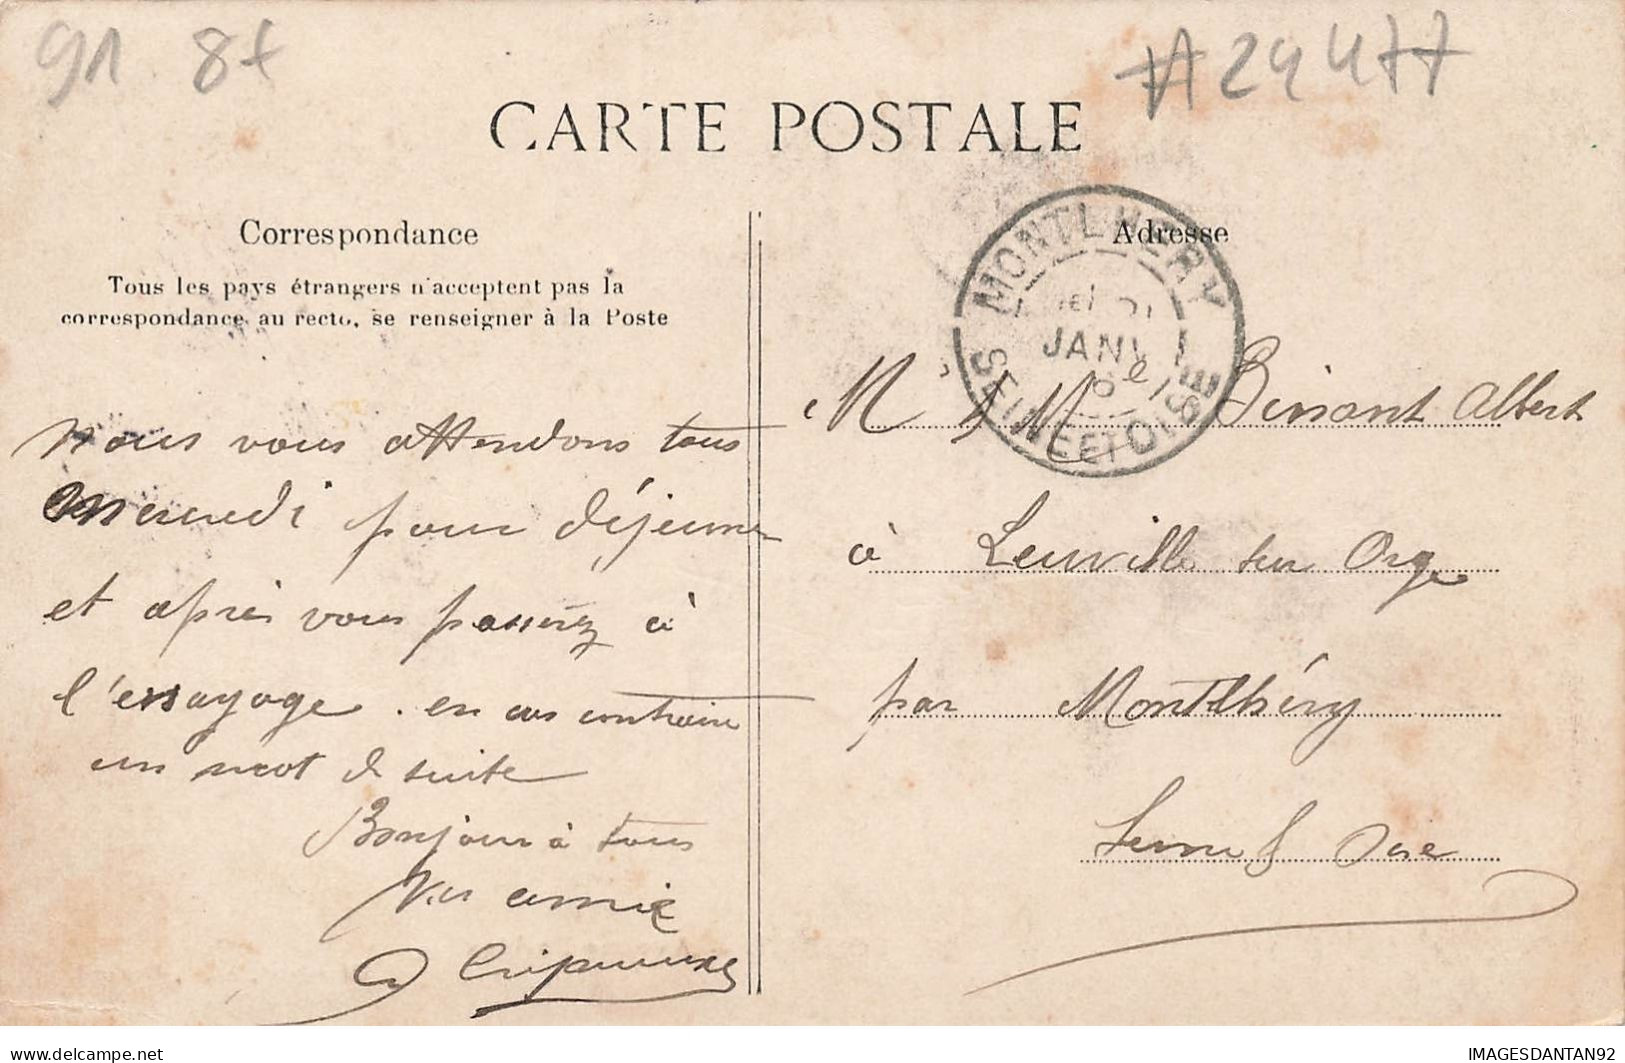 91 87
A 24477
CARTE POSTALE
Correspondance
Tous les pays étrangers n'acceptent pas la
correspondance au recto, se renseigner à la Poste
Nous vous attendons tous
mercredi pour déjeuner
et après vous passerez à
l'essayage. en cas contraire
un mot de suite
Bonjour à tous
Vos amis
Adresse
MONTLHERY
JANV
SEINE ET OISE
M Mme Albert
à Leuville sur Orge
par Montlhéry
Seine & Oise
delcampe.net
IMAGESDANTAN92